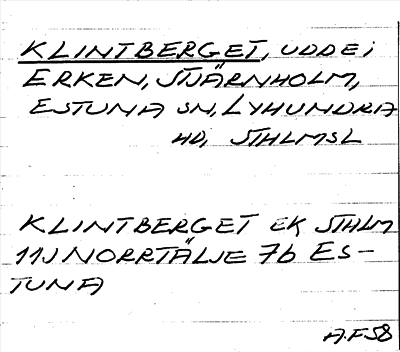 KLINTBERGET, UDDE i
ERKEN, STJÄRNHOLM,
ESTUNA SN, LYHUNDRA
HD, STHLMSL
KLINTBERGET EK STHLM
11J NORRTÄLJE 7b ES-
TUNA
A.F 58